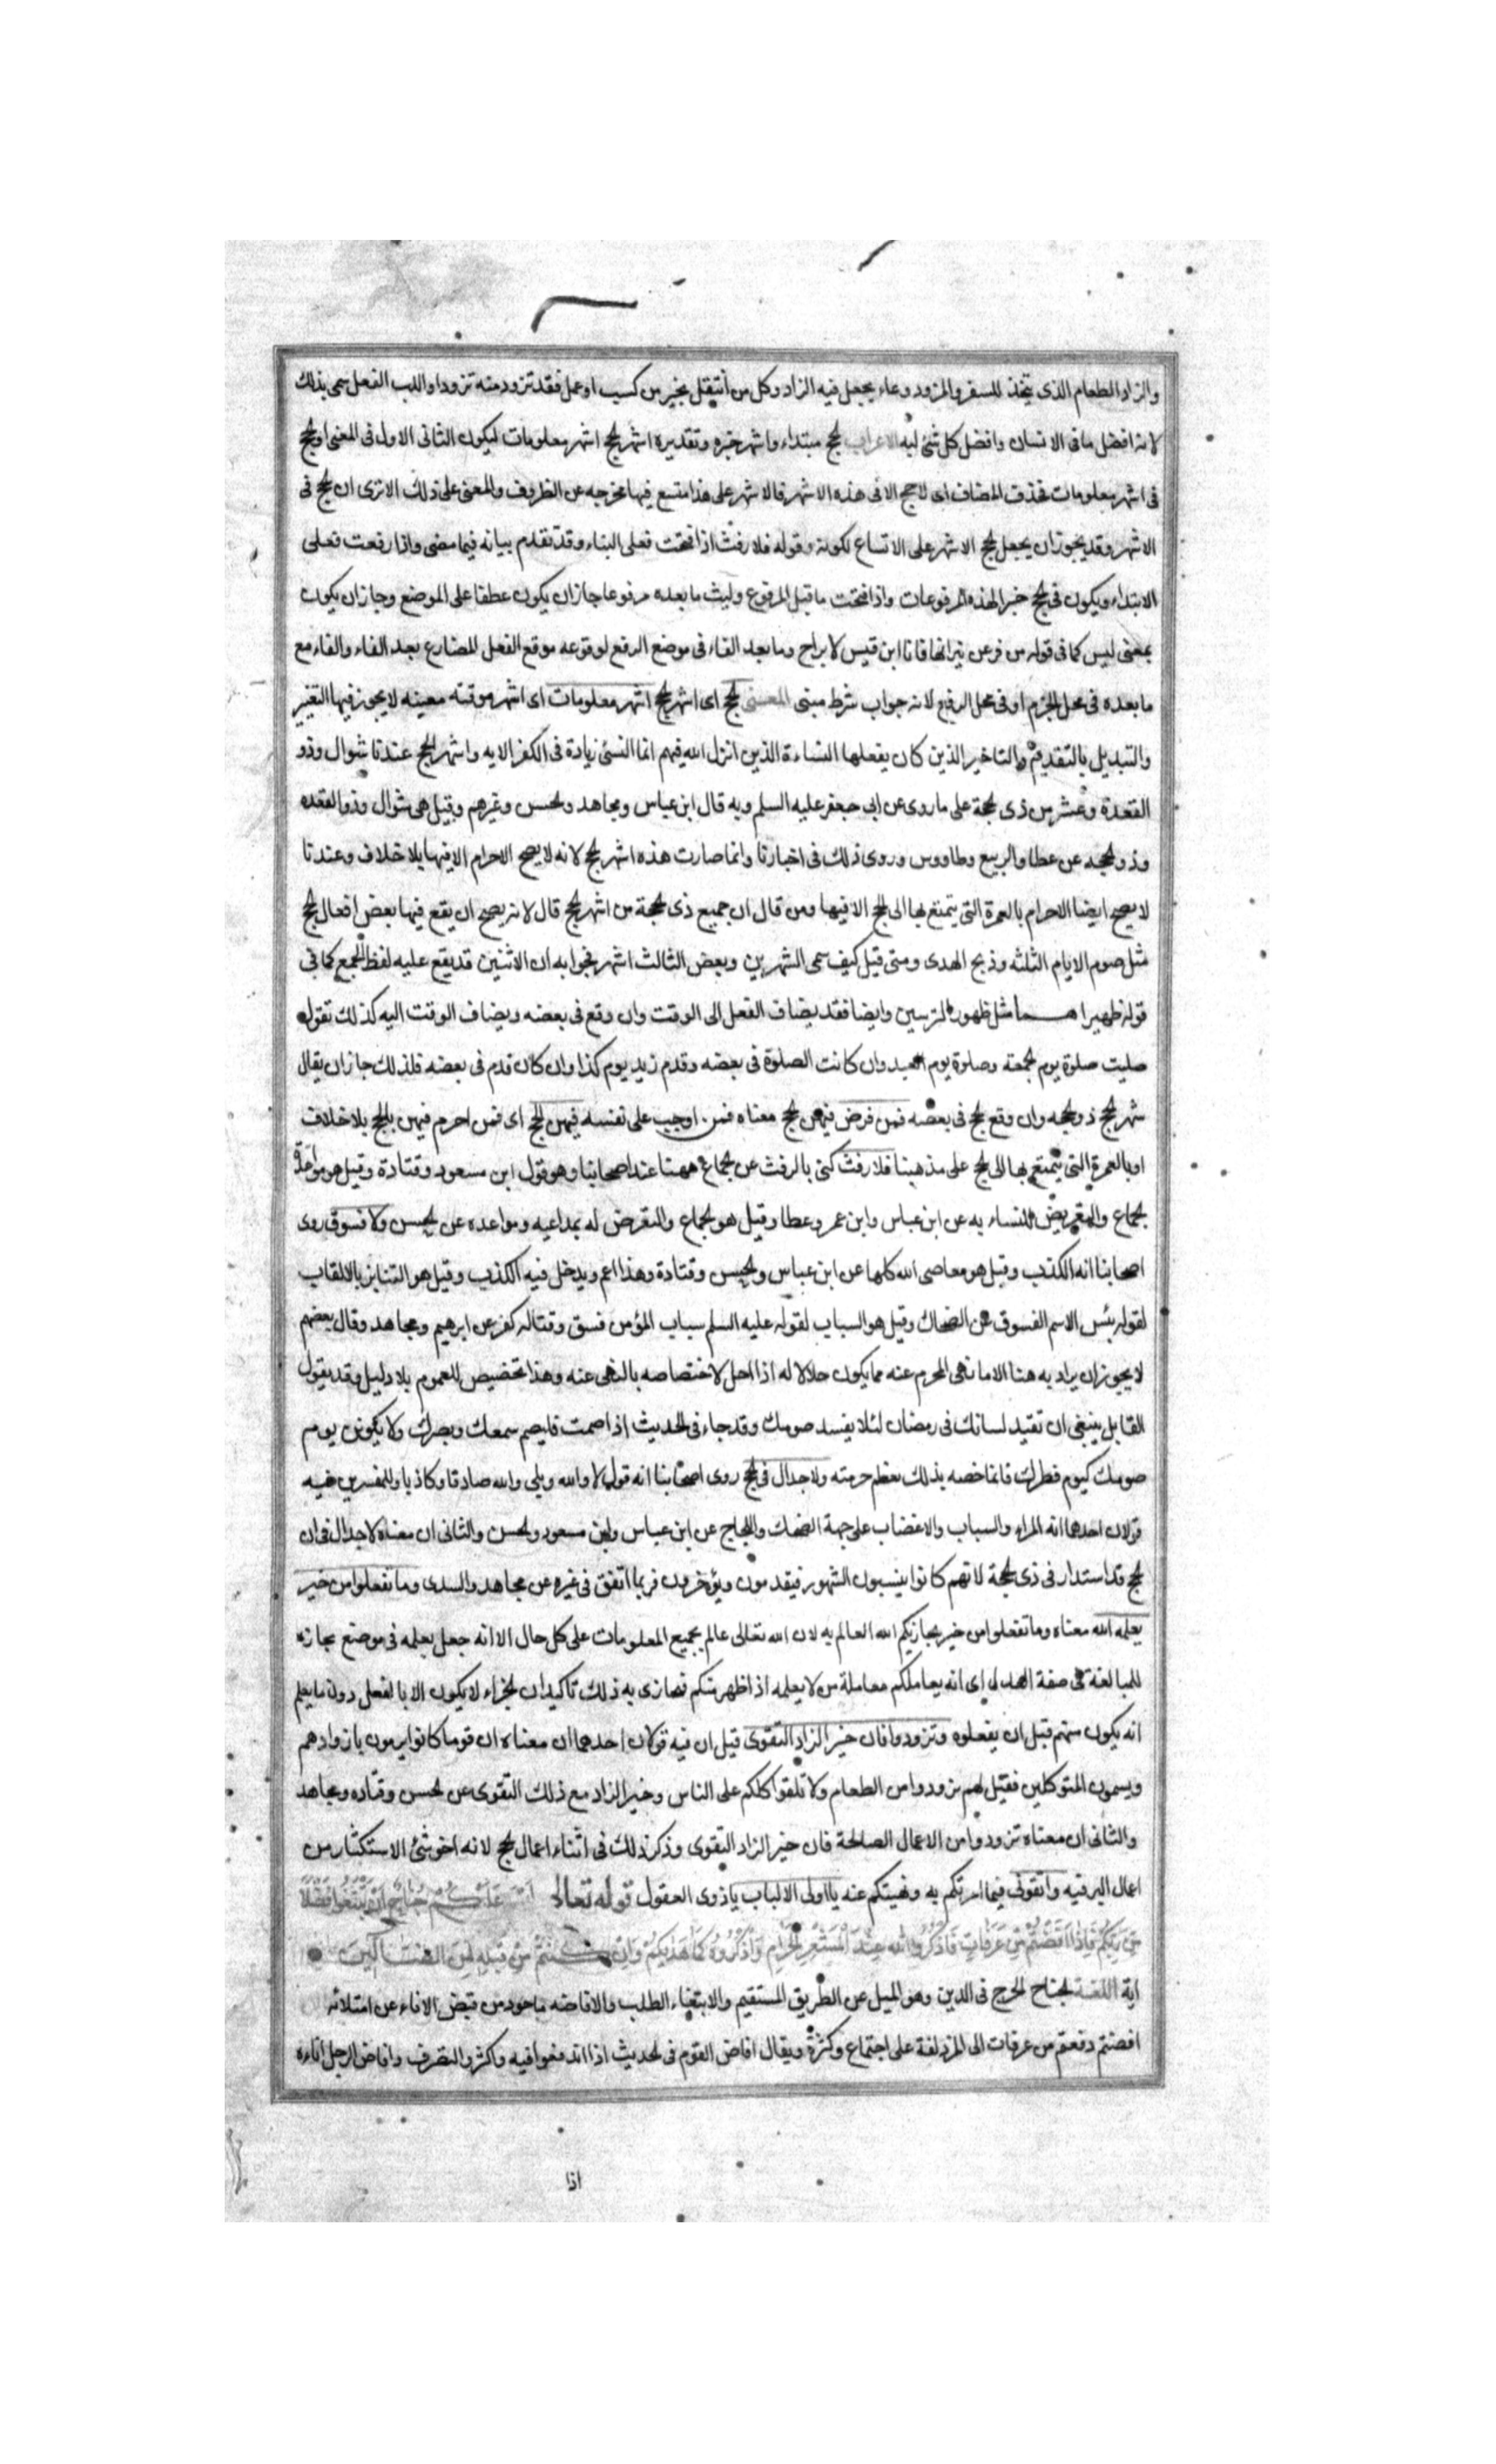 والزاد الطعام الذى يتخذ للسفر والمزود وعاء يجعل فيه الزاد وكل من انتقل بخير من كسب او عمل فقد تزود منه تزودا واللب العقل سمى بذلك
لانه افضل ما فى الانسان وافضل كل شئ لبه الاعراب الحج مبتداء واشهر خبره وتقديره اشهر الحج اشهر معلومات ليكون الثانى الاول فى المعنى او الحج
فى اشهر معلومات فحذف المضاف اى لا حج الا فى هذه الاشهر فالاشهر على هذا متسع فيها مخرجه عن الظروف والمعنى على ذلك الا ترى ان الحج فى
الاشهر وقد يجوز ان يجعل الحج الاشهر على الاتساع لكونه وقوله فلا رفث اذا فتحت فعلى البناء وقد تقدم بيانه فيما مضى واذا رفعت فعلى
الابتداء ويكون فى الحج خبرا لهذه المرفوعات واذا فتحت ما قبل المرفوع وليث ما بعده مرفوعا جاز ان يكون عطفا على الموضع وجاز ان يكون
بمعنى ليس كما فى قوله من فر عن نيرانها فانا ابن قيس لا براح وما بعد الفاء فى موضع الرفع لوقوعه موقع الفعل المضارع بعد الفاء والفاء مع
ما بعده فى محل الجزم او فى محل الرفع لانه جواب شرط مبنى المعنى الحج اى اشهر الحج اشهر معلومات اى اشهر موقته معينه لا يجوز فيها التغيير
والتبديل بالتقديم والتاخير الذين كان يفعلها النساءة الذين انزل الله فيهم انما النسئ زيادة فى الكفر الايه واشهر الحج عندنا شوال وذو
القعدة وعشر من ذى الحجة على ما روى عن ابى جعفر عليه السلم وبه قال ابن عباس ومجاهد والحسن وغيرهم وقيل هى شوال وذو القعده
وذو الحجه عن عطا والربيع وطاووس وروى ذلك فى اخبارنا وانما صارت هذه اشهر الحج لانه لا يصح الاحرام الا فيها بلا خلاف وعندنا
لا يصح ايضا الاحرام بالعمرة التى يتمتع بها الى الحج الا فيها ومن قال ان جميع ذى الحجة من اشهر الحج قال لانه يصح ان يقع فيها بعض افعال الحج
مثل صوم الايام الثلثه وذبح الهدى ومتى قيل كيف سمى الشهرين وبعض الثالث اشهر فجوابه ان الاثنين قد يقع عليه لفظ الجمع كما فى
قوله ظهيراهما مثل ظهور الترسين وايضا فقد يضاف الفعل الى الوقت وان وقع فى بعضه ويضاف الوقت اليه كذلك تقول
صليت صلوة يوم الجمعه وصلوة يوم العيد وان كانت الصلوة فى بعضه وقدم زيد يوم كذا وان كان قدم فى بعضه فلذلك جاز ان يقال
شهر الحج ذو الحجه وان وقع الحج فى بعضه فمن فرض فيهن الحج معناه فمن اوجب على نفسه فيهن الحج اى فمن احرم فيهن بالحج بلا خلاف
او بالعمرة التى يتمتع بها الى الحج على مذهبنا فلا رفث كنى بالرفث عن الجماع ههنا عند اصحابنا وهو قول ابن مسعود وقتادة وقيل هو مواعدة
الجماع والتعريض للنساء به عن ابن عباس وابن عمر وعطا وقيل هو الجماع والتعرض له بمداعبه ومواعده عن الحسن ولا فسوق روى
اصحابنا انه الكذب وقيل هو معاصى الله كلها عن ابن عباس والحسن وقتادة وهذا اعم ويدخل فيه الكذب وقيل هو التنابز بالالقاب
لقوله بئس الاسم الفسوق عن الضحاك وقيل هو السباب لقوله عليه السلم سباب المؤمن فسق وقتاله كفر عن ابرهيم ومجاهد وقال بعضهم
لا يجوز ان يراد به هنا الا ما نهى المحرم عنه مما يكون حلالا له اذا احل لاختصاصه بالنهى عنه وهذا تخصيص للعموم بلا دليل وقد يقول
القايل ينبغى ان تقيد لسانك فى رمضان لئلا يفسد صومك وقد جاء فى الحديث اذا صمت فليصم سمعك وبصرك ولا يكون يوم
صومك كيوم فطرك فانما خصه بذلك لعظم حرمته ولا جدال فى الحج روى اصحابنا انه قول لا والله وبلى والله صادقا وكاذبا وللمفسرين فيه
قولان احدهما انه المراء والسباب والاغضاب على جهة المحك واللجاج عن ابن عباس وابن مسعود والحسن والثانى ان معناه لا جدال فى ان
الحج قد استدار فى ذى الحجة لانهم كانوا ينسبون الشهور فيقدمون ويؤخرون فربما اتفق فى غيره عن مجاهد والسدى وما تفعلوا من خير
يعلمه الله معناه وما تفعلوا من خير يجازيكم الله العالم به لان الله تعالى عالم بجميع المعلومات على كل حال الا انه جعل يعلمه فى موضع يجازيه
للمبالغة فى صفة العدل اى انه يعاملكم معاملة من لا يعلمه اذا ظهر منكم فجازى به ذلك تاكيد ان الجزاء لا يكون الا بالفعل دون ما يعلم
انه يكون منهم قبل ان يفعلوه وتزودوا فان خير الزاد التقوى قيل ان فيه قولان احدهما ان معناه ان قوما كانوا يرمون بازوادهم
ويسمون المتوكلين فقيل لهم تزودوا من الطعام ولا تلقوا كلكم على الناس وخير الزاد مع ذلك التقوى عن الحسن وقتاده ومجاهد
والثانى ان معناه تزودوا من الاعمال الصالحة فان خير الزاد التقوى وذكر ذلك فى اثناء اعمال الحج لانه احق شئ الاستكثار من
اعمال البر فيه واتقونى فيما امرتكم به ونهيتكم عنه يا اولى الالباب يا ذوى العقول قوله تعالى عَلَيْكُمْ جُنَاحٌ اَنْ تَبْتَغُوا فَضْلًا
مِنْ رَبِّكُمْ فَاِذَا اَفَضْتُمْ مِنْ عَرَفَاتٍ فَاذْكُرُوا الله عِنْدَ الْمَشْعَرِ الْحَرَامِ وَاذْكُرُوهُ كَمَا هَدٰيكُمْ وَاِنْ كُنْتُمْ مِنْ قَبْلِهِ لَمِنَ الضَّالِّينَ
اية اللغة الجناح الحرج فى الدين وهو الميل عن الطريق المستقيم والابتغاء الطلب والافاضه ماخوذ من فيض الاناء عن امتلائه
افضتم دفعتم من عرفات الى المزدلفة على اجتماع وكثرة ويقال افاض القوم فى الحديث اذا اندفعوا فيه واكثروا التصرف وافاض الرجل اناءه
اذا